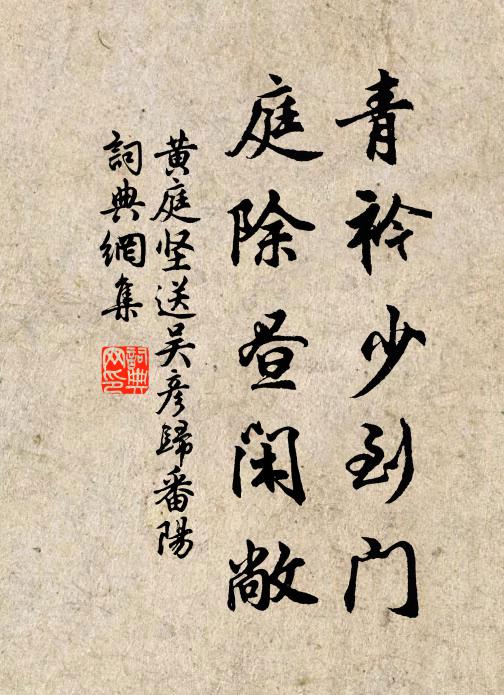 青衿少到门
庭除昼闲敞
黄庭坚送吴彦歸番陽
詞典網集
詞典网印